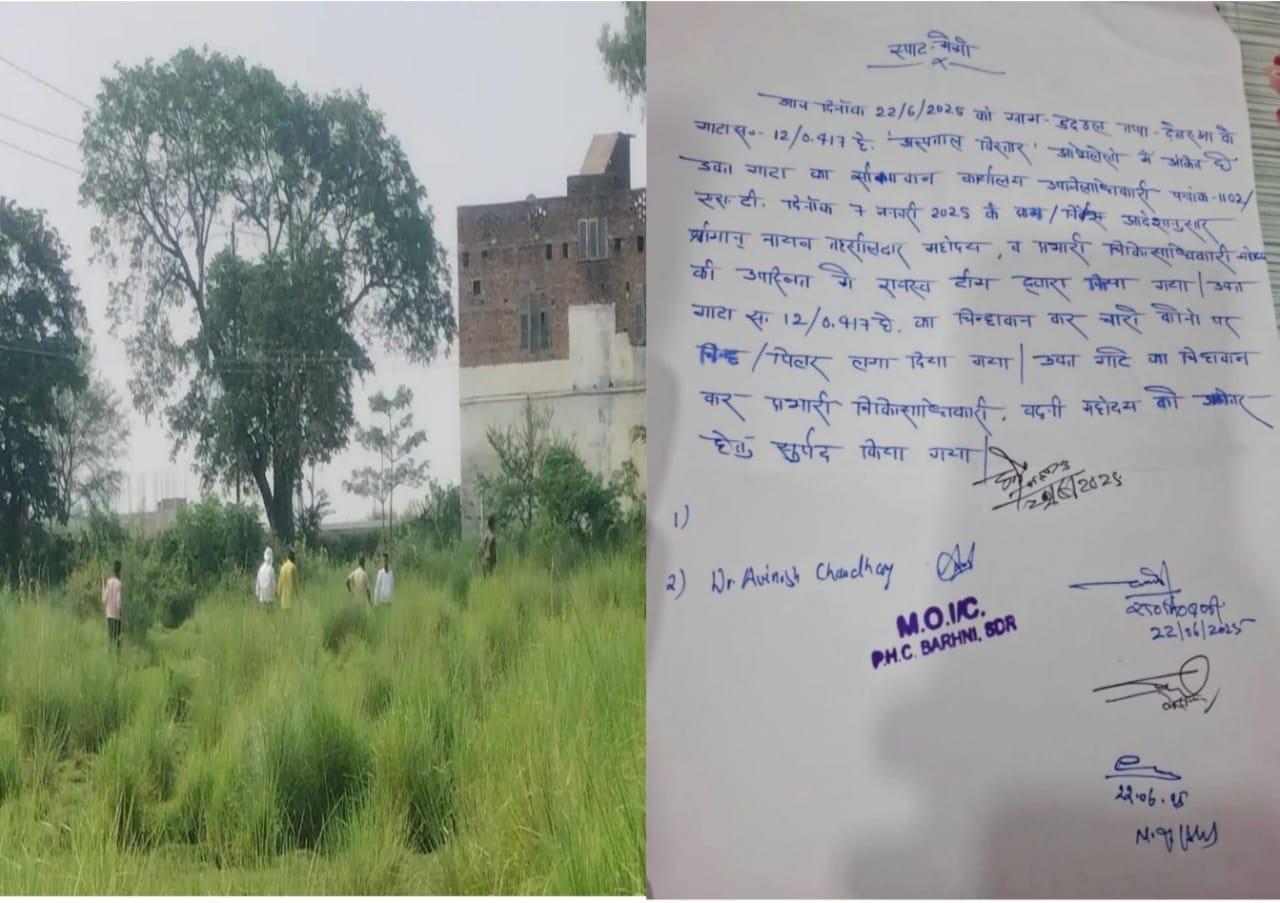 स्पाट-मेमो
आज दिनाँक 22/6/2025 को ग्राम- डुदडल तप्पा- देवरुआ के
गाटा सं०- 12/0.417 हे. 'अस्पताल विस्तार' अभिलेखों में अंकित है
उक्त गाटा का सीमांकन कार्यालय उपजिलाधिकारी पत्रांक-1102/
एस.टी. दिनाँक 7 जनवरी 2025 के क्रम/निर्देश आदेशानुसार
श्रीमान् नायब तहसीलदार महोदय, व प्रभारी चिकित्साधिकारी महोदय
की उपस्थित में राजस्व टीम द्वारा किया गया | उक्त
गाटा सं. 12/0.417 हे. का चिन्हांकन कर चारो कोनो पर
चिन्ह/पिलर लगा दिया गया | उक्त गाटे का चिन्हांकन
कर प्रभारी चिकित्साधिकारी, बढ़नी महोदय को
हेतु सुर्पद किया गया |
22/6/2025
1)
2) Dr Avinash Chaudhary
M.O.I/C.
P.H.C. BARHNI, SDR
22/06/2025
22.06.25